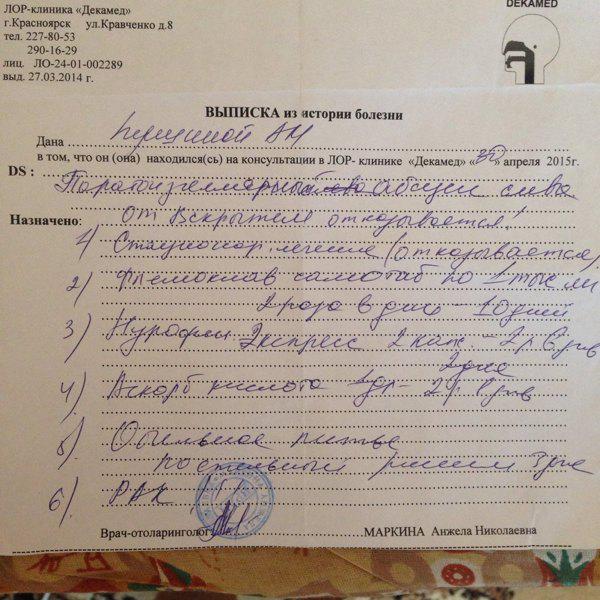 ЛОР-клиника «Декамед»
г.Красноярск ул.Кравченко д.8
тел. 227-80-53
290-16-29
лиц. ЛО-24-01-002289
выд. 27.03.2014 г.
DEKAMED
ВЫПИСКА из истории болезни
Дана
в том, что он (она) находился(сь) на консультации в ЛОР- клинике «Декамед» «30» апреля 2015г.
DS : Паратонзиллярный абсцесс слева
От вскрытия отказывается!
Назначено:
1) Стационар лечение (отказывается)
2) Флемоклав солютаб по 1 тыс
2 раза в день - 10 дней
3) Нурофен Экспресс 2 кап. - 2 р в день
2 дня
4) Аскорб кислота 1 др - 2 р в день
5) Обильное питье
постельный режим 3 дня
6) РАК
Врач-отоларинголог МАРКИНА Анжела Николаевна